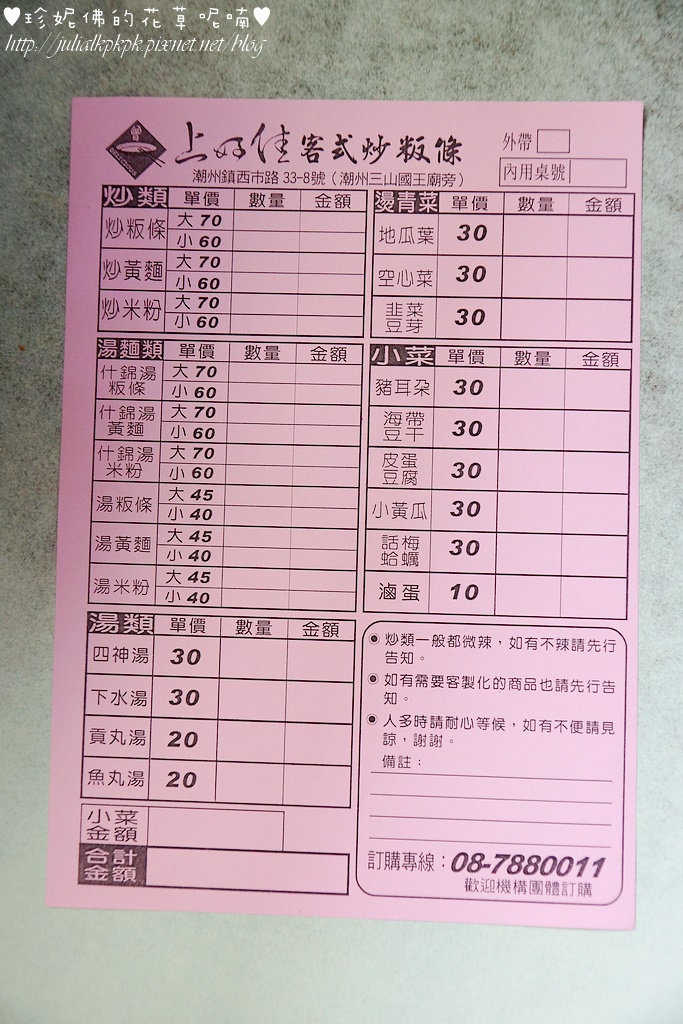 ♥珍妮佛的花草呢喃♥
http://julialkpkpk.pixnet.net/blog
上好佳客式炒粄條
潮州鎮西市路33-8號（潮州三山國王廟旁）
外帶
內用桌號
炒類 單價 數量 金額
炒粄條 大 70
小 60
炒黃麵 大 70
小 60
炒米粉 大 70
小 60
湯麵類 單價 數量 金額
什錦湯粄條 大 70
小 60
什錦湯黃麵 大 70
小 60
什錦湯米粉 大 70
小 60
湯粄條 大 45
小 40
湯黃麵 大 45
小 40
湯米粉 大 45
小 40
湯類 單價 數量 金額
四神湯 30
下水湯 30
貢丸湯 20
魚丸湯 20
小菜金額
合計金額
燙青菜 單價 數量 金額
地瓜葉 30
空心菜 30
韭菜豆芽 30
小菜 單價 數量 金額
豬耳朵 30
海帶豆干 30
皮蛋豆腐 30
小黃瓜 30
話梅蛤蠣 30
滷蛋 10
炒類一般都微辣，如有不辣請先行
告知。
如有需要客製化的商品也請先行告
知。
人多時請耐心等候，如有不便請見
諒，謝謝。
備註：
訂購專線：08-7880011
歡迎機構團體訂購